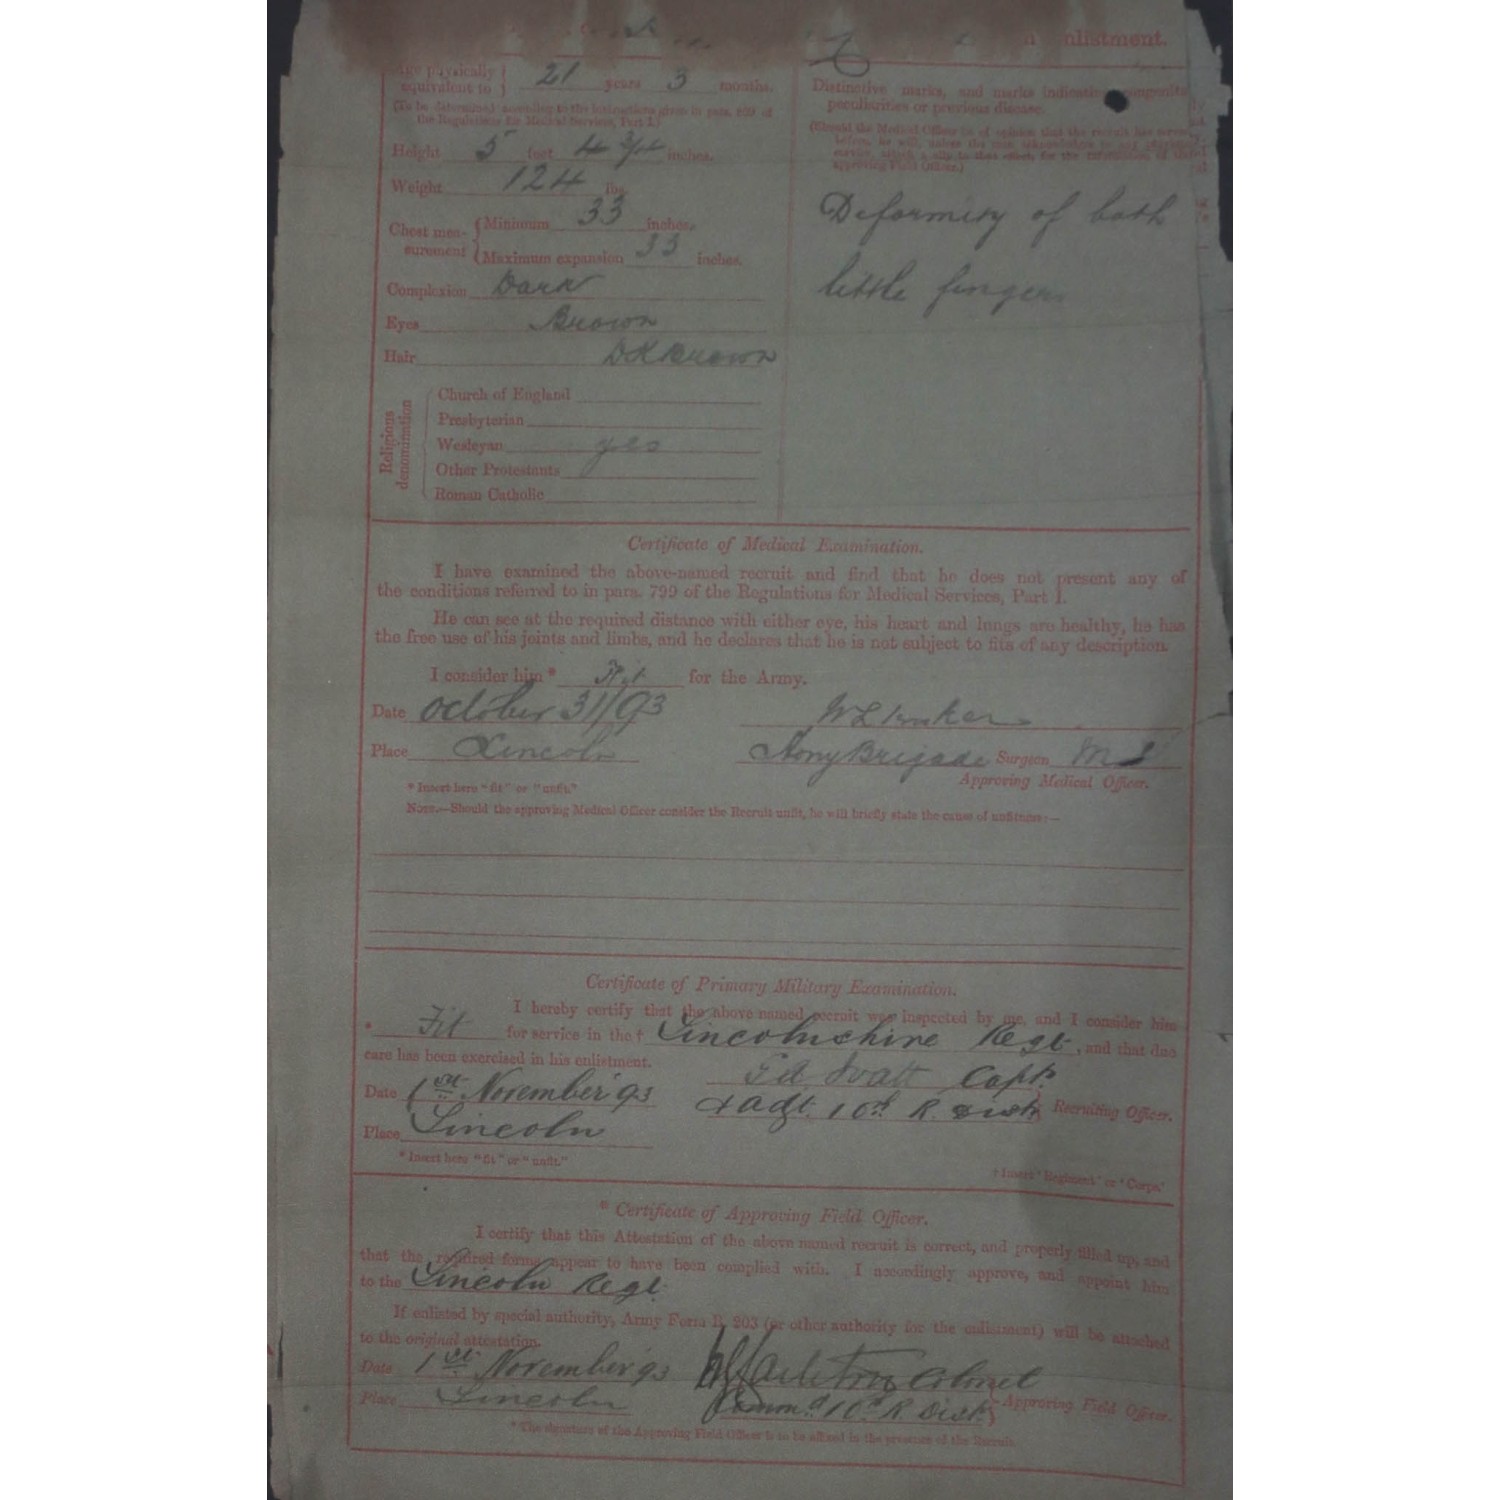 nlistment.
Age physically equivalent to 21 years 3 months.
(To be determined according to the instructions given in para. of the Regulations for Medical Services, Part I.)
Height 5 feet 4 inches.
Weight 124 lbs.
Chest mea-surement
Minimum 33 inches.
Maximum expansion 33 inches.
Complexion Dark
Eyes Brown
Hair DK Brown
Religious denomination
Church of England
Presbyterian
Wesleyan yes
Other Protestants
Roman Catholic
Distinctive marks, and marks indicating congenital
peculiarities or previous disease.
(Should the Medical Officer be of opinion that the recruit has served
before, he will, unless the man acknowledges to any
service, attach a slip to that effect, for the information of the
approving Field Officer.)
Deformity of both
little fingers
Certificate of Medical Examination.
I have examined the above-named recruit and find that he does not present any of
the conditions referred to in para. 799 of the Regulations for Medical Services, Part I.
He can see at the required distance with either eye, his heart and lungs are healthy, he has
the free use of his joints and limbs, and he declares that he is not subject to fits of any description.
I consider him* Fit for the Army.
Date October 31/93
Place Lincoln Hony Brigade Surgeon
Approving Medical Officer.
* Insert here "fit" or "unfit."
NOTE.—Should the approving Medical Officer consider the Recruit unfit, he will briefly state the cause of unfitness:—
Certificate of Primary Military Examination.
I hereby certify that the above named recruit was inspected by me, and I consider him
* Fit for service in the † Lincolnshire Regt, and that due
care has been exercised in his enlistment.
Capt.
Date 1st November 93 & Adjt. 10th R. Dist. Recruiting Officer.
Place Lincoln
* Insert here "fit" or "unfit."
† Insert 'Regiment' or 'Corps.'
* Certificate of Approving Field Officer.
I certify that this Attestation of the above named recruit is correct, and properly filled up, and
that the required forms appear to have been complied with. I accordingly approve, and appoint him
to the Lincoln Regt.
If enlisted by special authority, Army Form B. 203 (or other authority for the enlistment) will be attached
to the original attestation.
Date 1st November 93 Colonel
Place Lincoln Comm.d 10th R. Dist. Approving Field Officer.
* The signature of the Approving Field Officer is to be affixed in the presence of the Recruit.